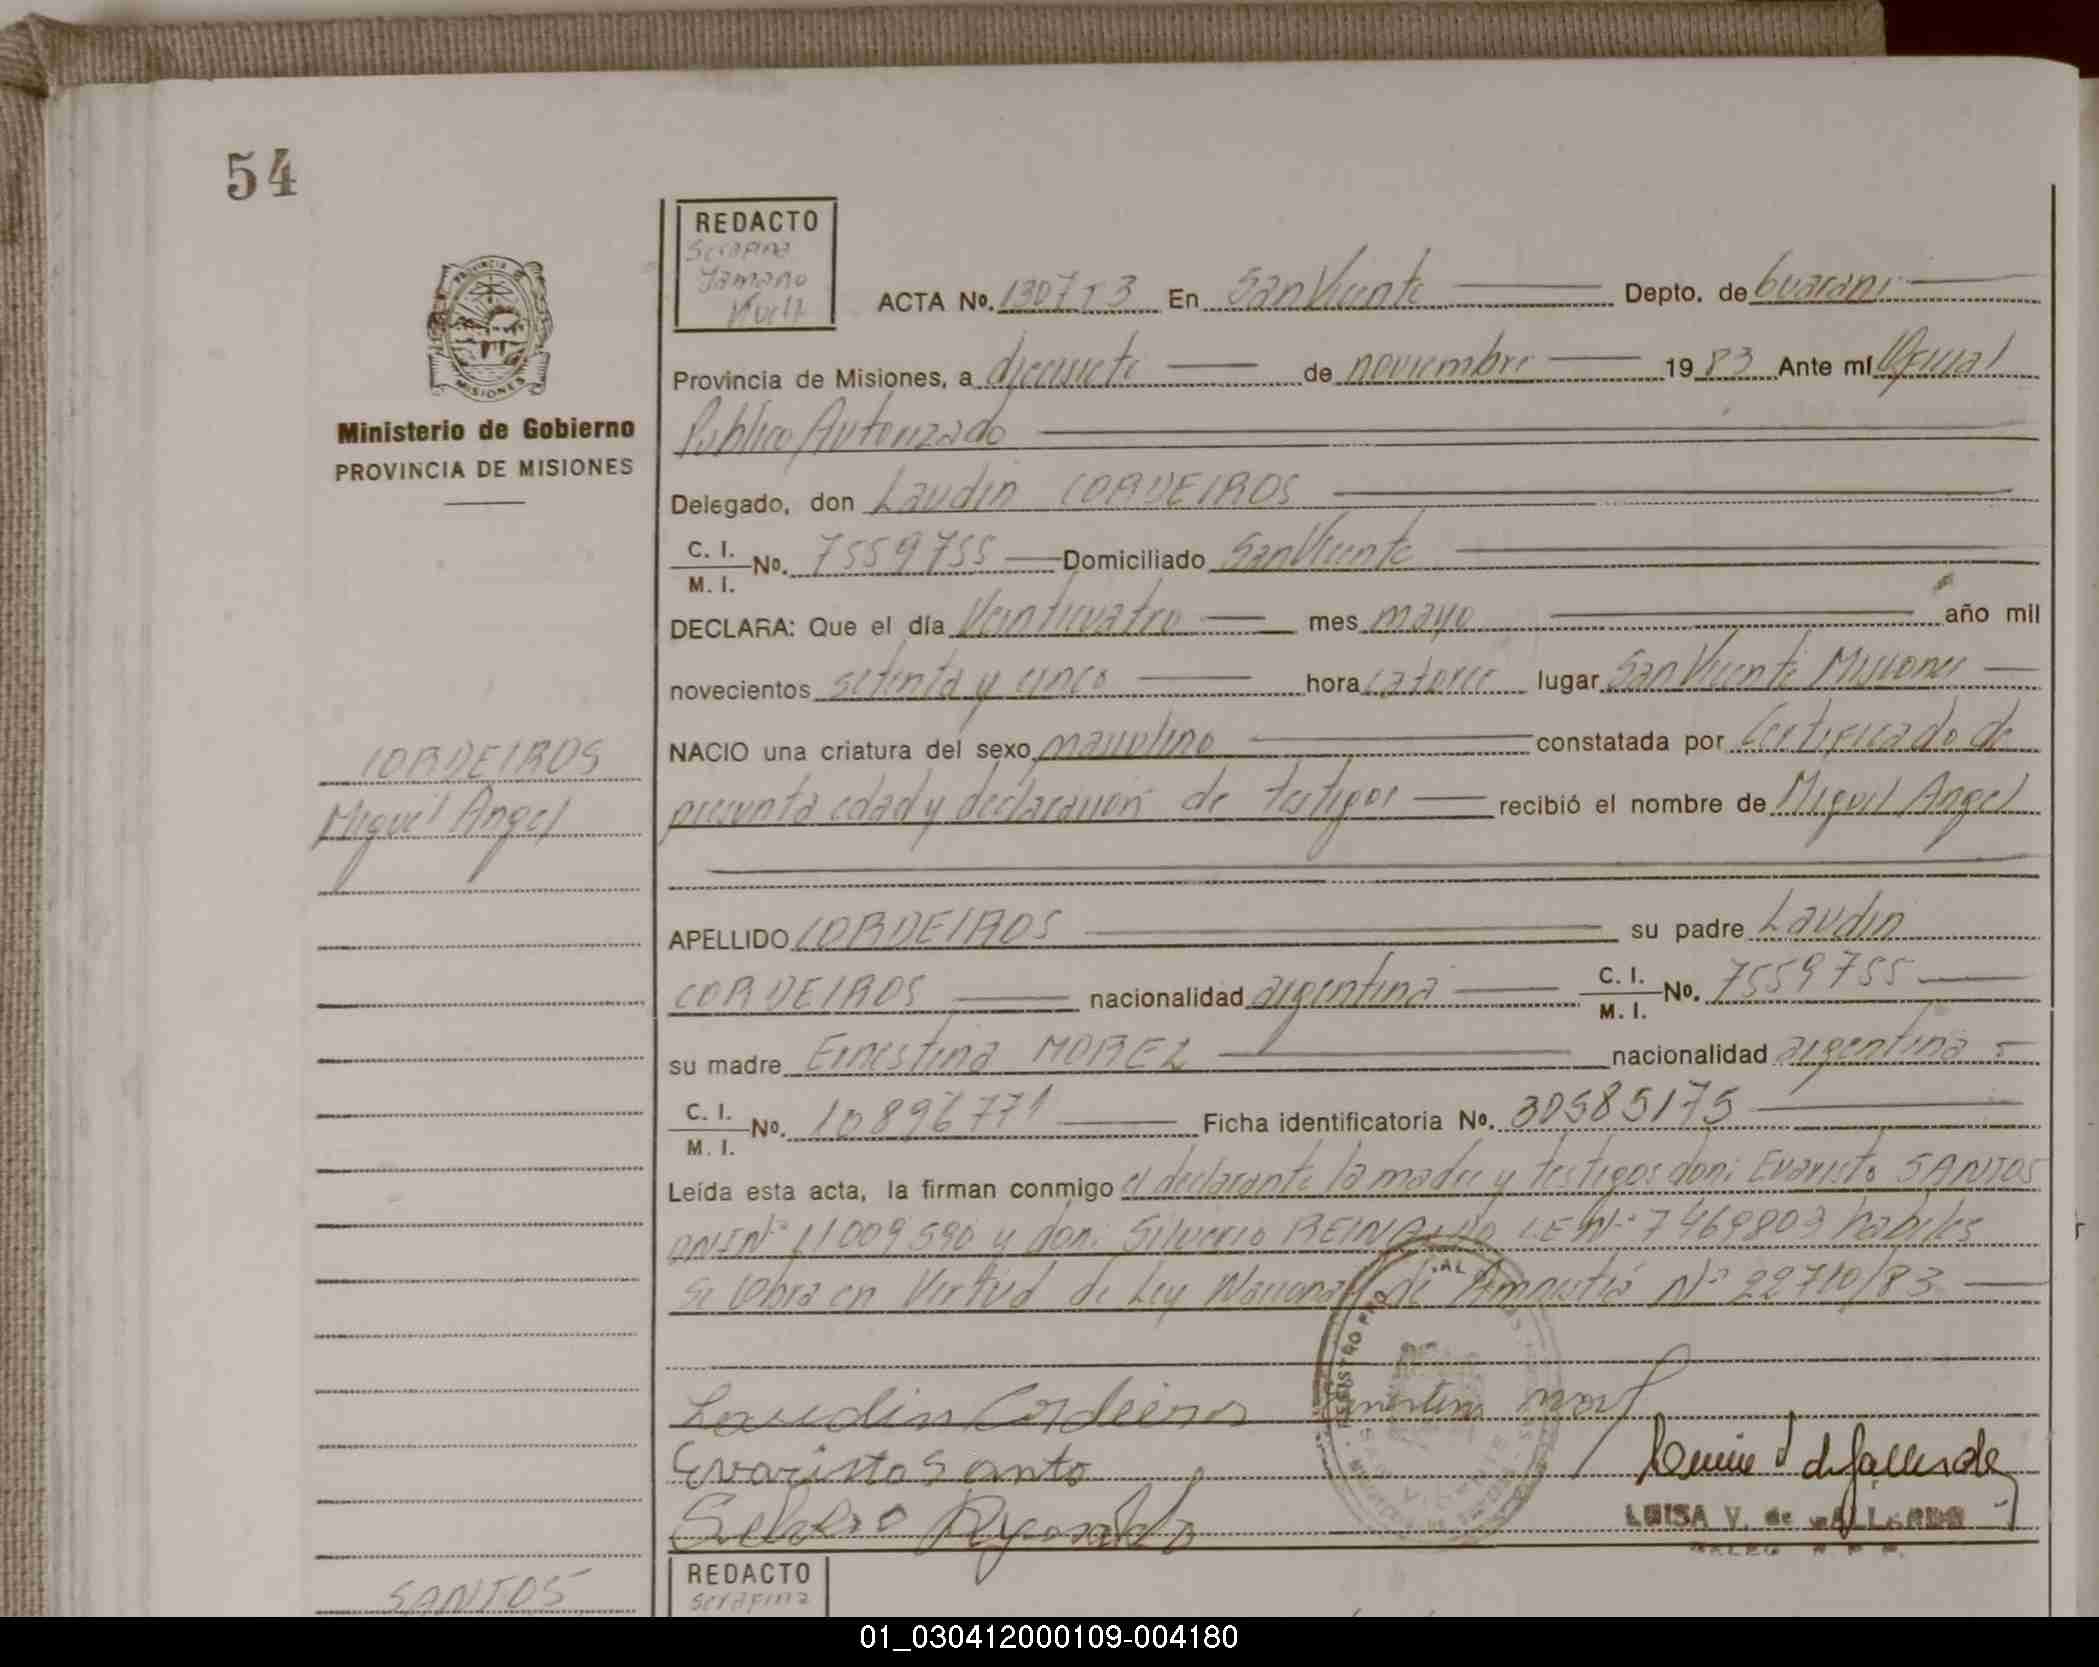 54
REDACTO
Serafina
ACTA No. 1307 T 3 En San Vicente Depto. de Guarani
Provincia de Misiones, a diecisiete de noviembre 1983 Ante mí Oficial
Público Autorizado
MISIONES
Ministerio de Gobierno
PROVINCIA DE MISIONES
Delegado, don Laudin CORDEIROS
C. I. M. I. No. 7559755 Domiciliado San Vicente
DECLARA: Que el día Veinticuatro mes mayo año mil
novecientos setenta y cinco hora catorce lugar San Vicente Misiones
NACIO una criatura del sexo masculino constatada por Certificado de
presunta edad y declaración de testigos recibió el nombre de Miguel Angel
CORDEIROS
Miguel Angel
APELLIDO CORDEIROS su padre Laudin
CORDEIROS nacionalidad argentina C. I. M. I. No. 7559755
su madre Ernestina MOREL nacionalidad argentina
C. I. M. I. No. 10896771 Ficha identificatoria No. 30585175
Leída esta acta, la firman conmigo el declarante la madre y testigos don: Evaristo SANTOS
DNI Nº 11009590 y don: Silverio REINALDO LE Nº 7469803 habiles
Se labra en Virtud de Ley Nacional de Amnistia Nº 22710/83
Laudin Cordeiros
Evaristo Santo
LUISA V. de GALLARDO
REDACTO
Serafina
SANTOS
01_030412000109-004180